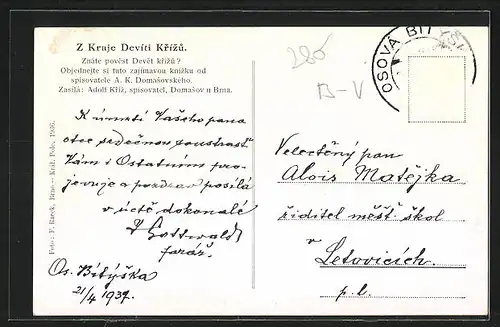 Z Kraje Devíti Křížů.
Znáte pověst Devět křížů?
Objednejte si tuto zajímavou knížku od
spisovatele A. K. Domašovského.
Zasílá: Adolf Kříž, spisovatel, Domašov u Brna.
K úmrtí Vašeho pana
otce srdečnou soustrast
Vám i Ostatním pro-
jevuje a pozdrav posílá
v úctě dokonalé
Gottwald
farář.
Os. Bítýška
21/4 1937.
Foto: F. Burek, Brno - Král. Pole, 1936.
280
B-V
OSOVÁ BITÝŠ
Velectěný pan
Alois Matějka
řiditel měšť. škol
v
Letovicích.
p. l.